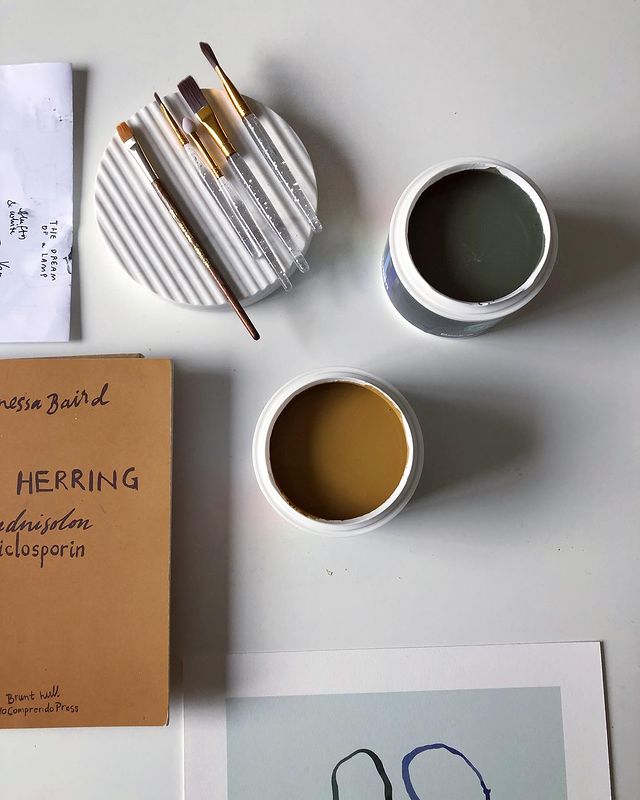 THE DREAM
OF A LAMP
& white
nessa Baird
HERRING
ednisolon
iclosporin
Brunt hull
NoComprendoPress